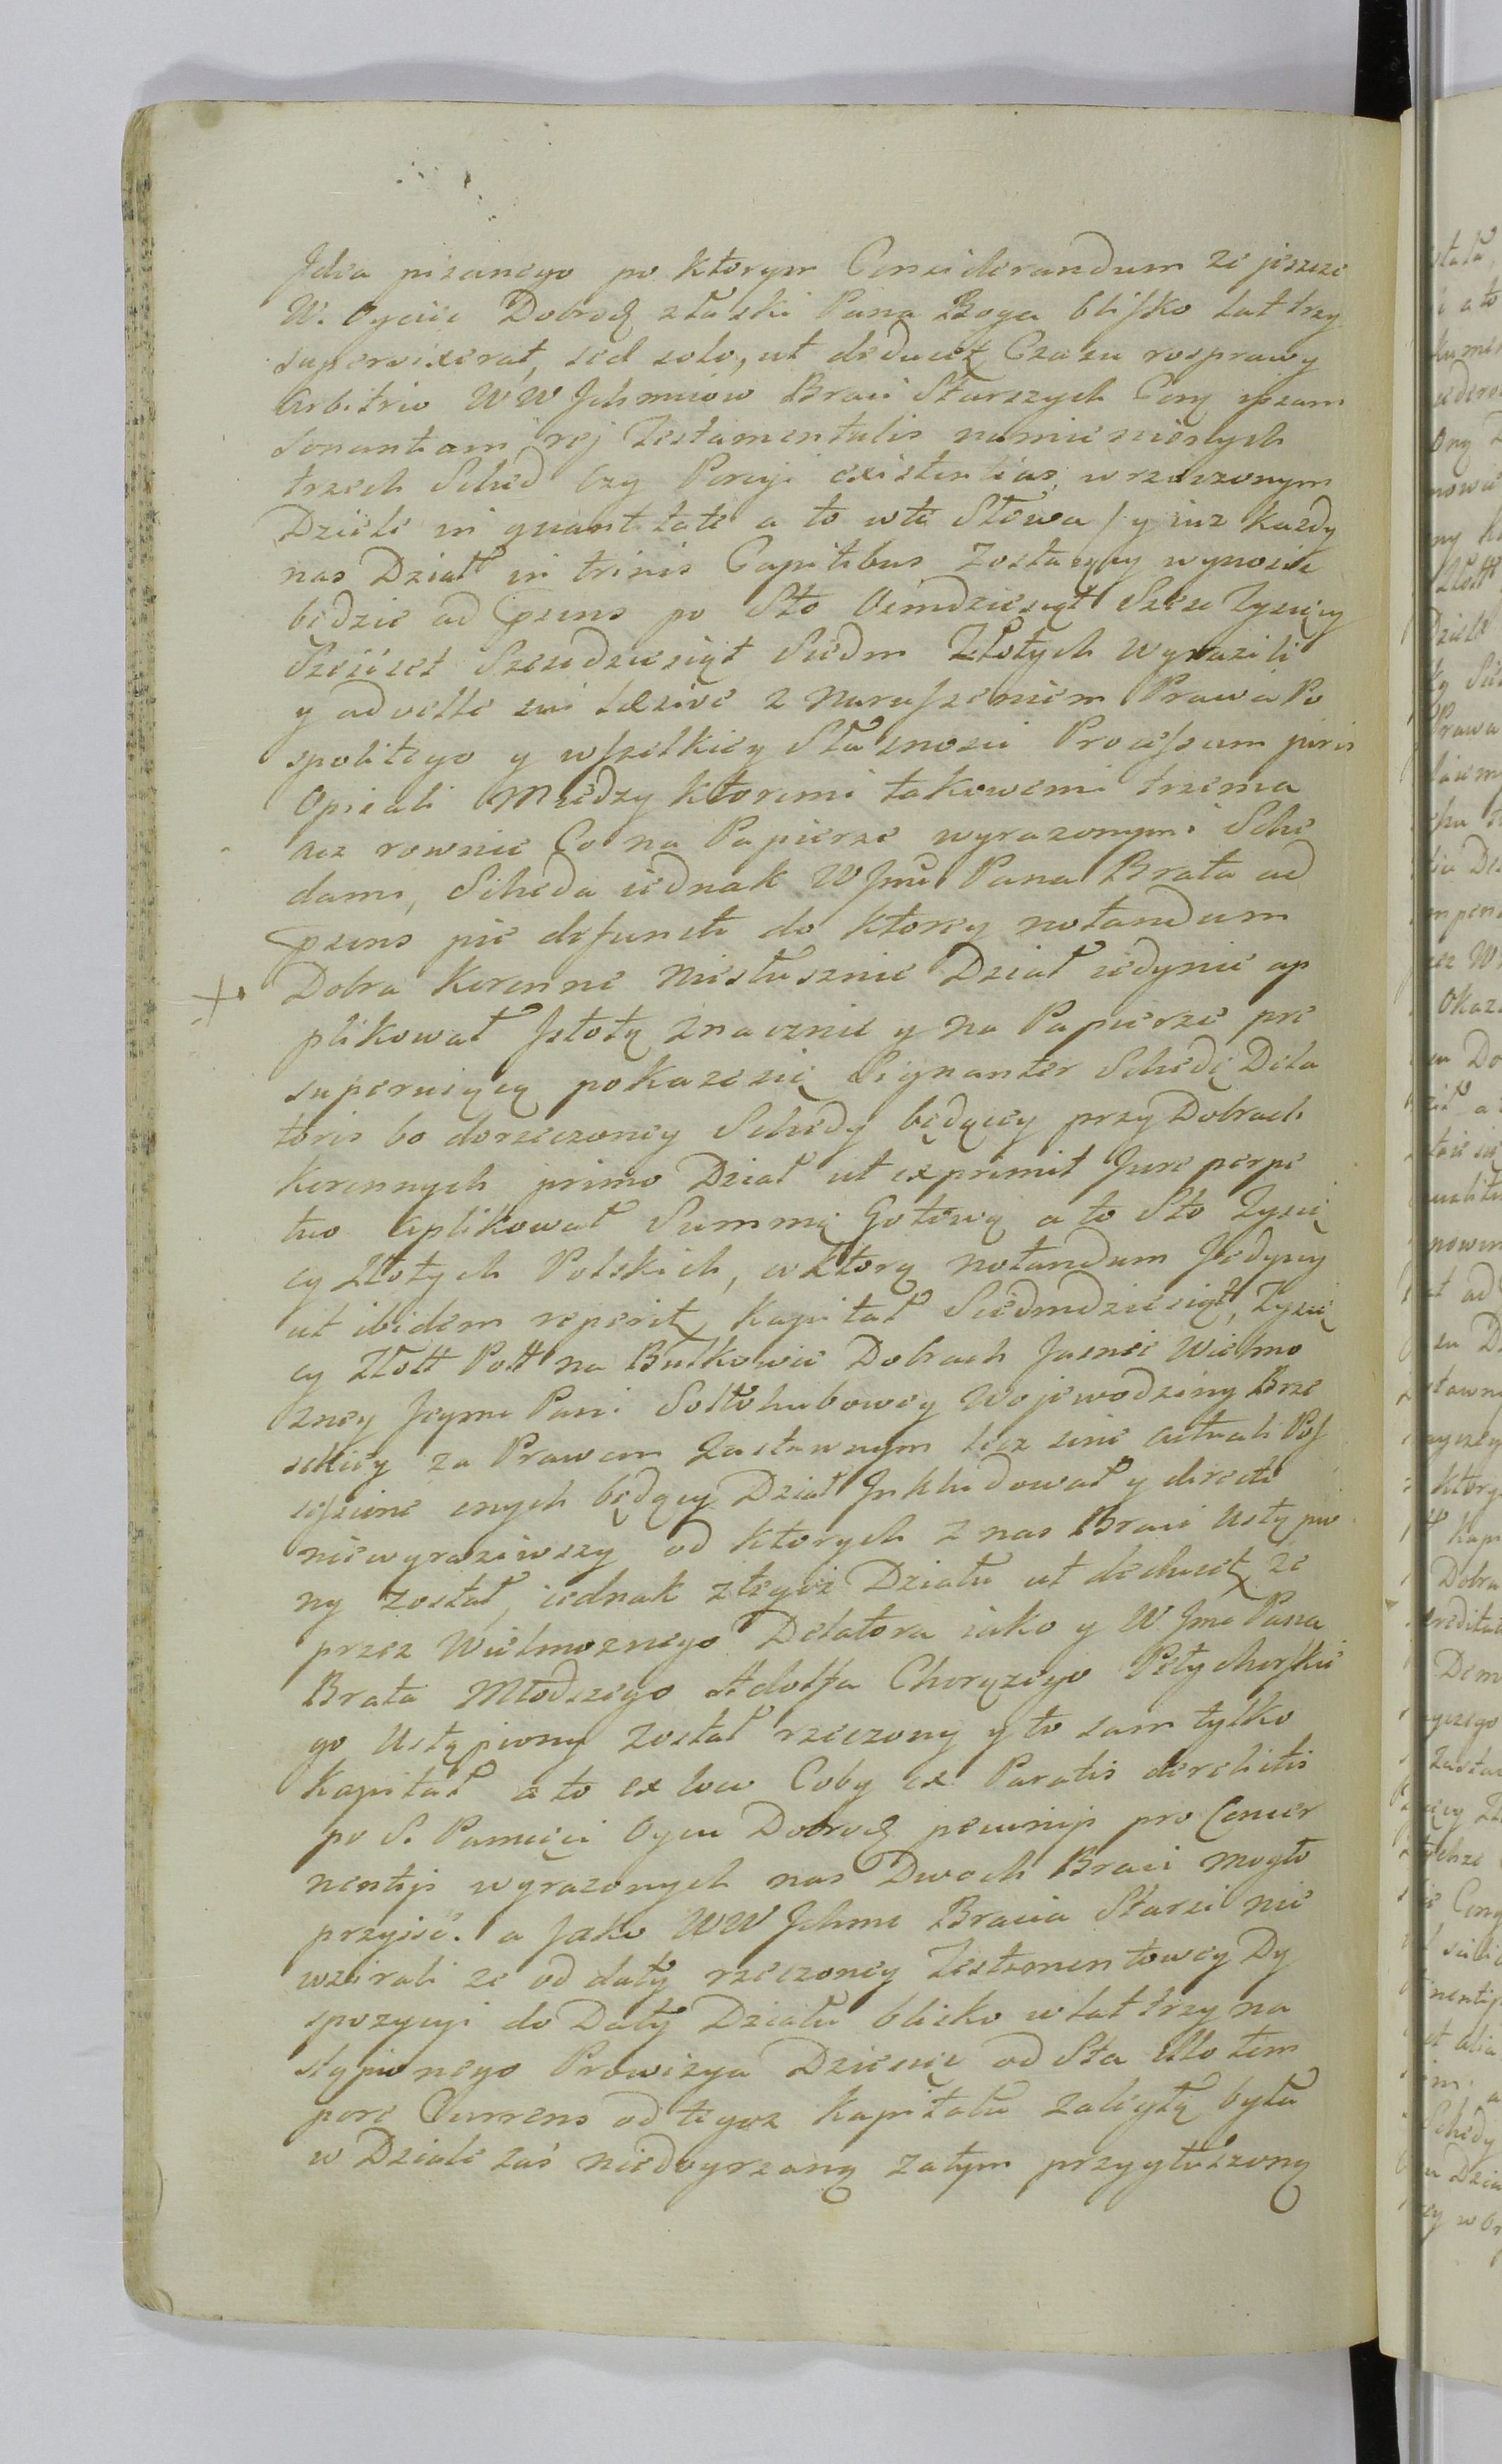 Jdea pisanego po ktorym Considerandum ze jeszcze
W. Oyciec Dobrodz z łaski Pana Boga blisko lat trzy
supervixerat, sed solo, ut deducet Czasu rosprawy
Arbitrio WW Jchmciow Braci Starszych
sonantiam rej Testamentalis namienionych
trzech Sched czy Porcyi existentias w rzeczonym
Dziele in quantitate a to w te Słowa / y iuz kazdy
nas Dział in trinis Capitibus zostaiący wynosić
będzie ad psens po Sto Osmdziesiąt Szesc Tysięcy
Sześćset Szescdziesiąt Siedm Złotych wyrazili
y ad velle sui læsive z naruszeniem Prawa Po
spolitego y wszelkiey Słusznosci Processum juris
Opisali Między ktoremi takowemi trzema
acz rownie Co na Papierze wyrazonymi Sche
dami, Scheda iednak WJmci Pana Brata ad
psens pie defuncti do ktorey notandum
Dobra Korenne niesłusznie Dział iedynie ap
plikował Jstotę znacznie y na Papierze pre
superuiącą pokazesię Signanter Schedę Dela
toris bo dorzeczoney Schedy będącey przy Dobrach
korennych primo Dział ut exprimit Jure perpe
tuo Aplikował Summę Gotową a to Sto Tysię
cy Złotych Polskich, w ktorą notandum Jedyny
ut ibidem reperit Kapitał Siedmdziesiąt Tysię
cy Złott Poll na Butkowie Dobrach Jasnie Wielmo
zney Jeyme Pani Sołłohubowey Wojewodziny Brze
sckiey za Prawem Zastawnym lecz sine actuali Pos
sessione onych będący Dział Jnkludował y directe
niewyraziwszy od ktorych z nas Braci ustąpio
ny został, iednak z tegoż Działu ut deducet ze
przez Wielmoznego Delatora iako y WJmć Pana
Brata Młodszego Adolfa Chorązego Petyhorskie
go Ustąpiony został rzeczony y to sam tylko
Kapitał a to ex loco Coby ex Paratis derelictis
po S. Pamięci Oycu Dobrodz pecunijs pro Concer
nentijs wyrazonych nas Dwoch Braci mogło
przyiść. a Jako WW Jchmc Bracia Starsi nie
wzirali ze od daty rzeczoney Testamentowey Dy
spozycyi do Daty Działu blisko w lat trzy na
stąpionego Prowizya Dziesięć od Sta Illo tem
pore Currens od tegoz Kapitału zaległą była
w Dziale zaś niedoyrzaną zatym przygłuszoną